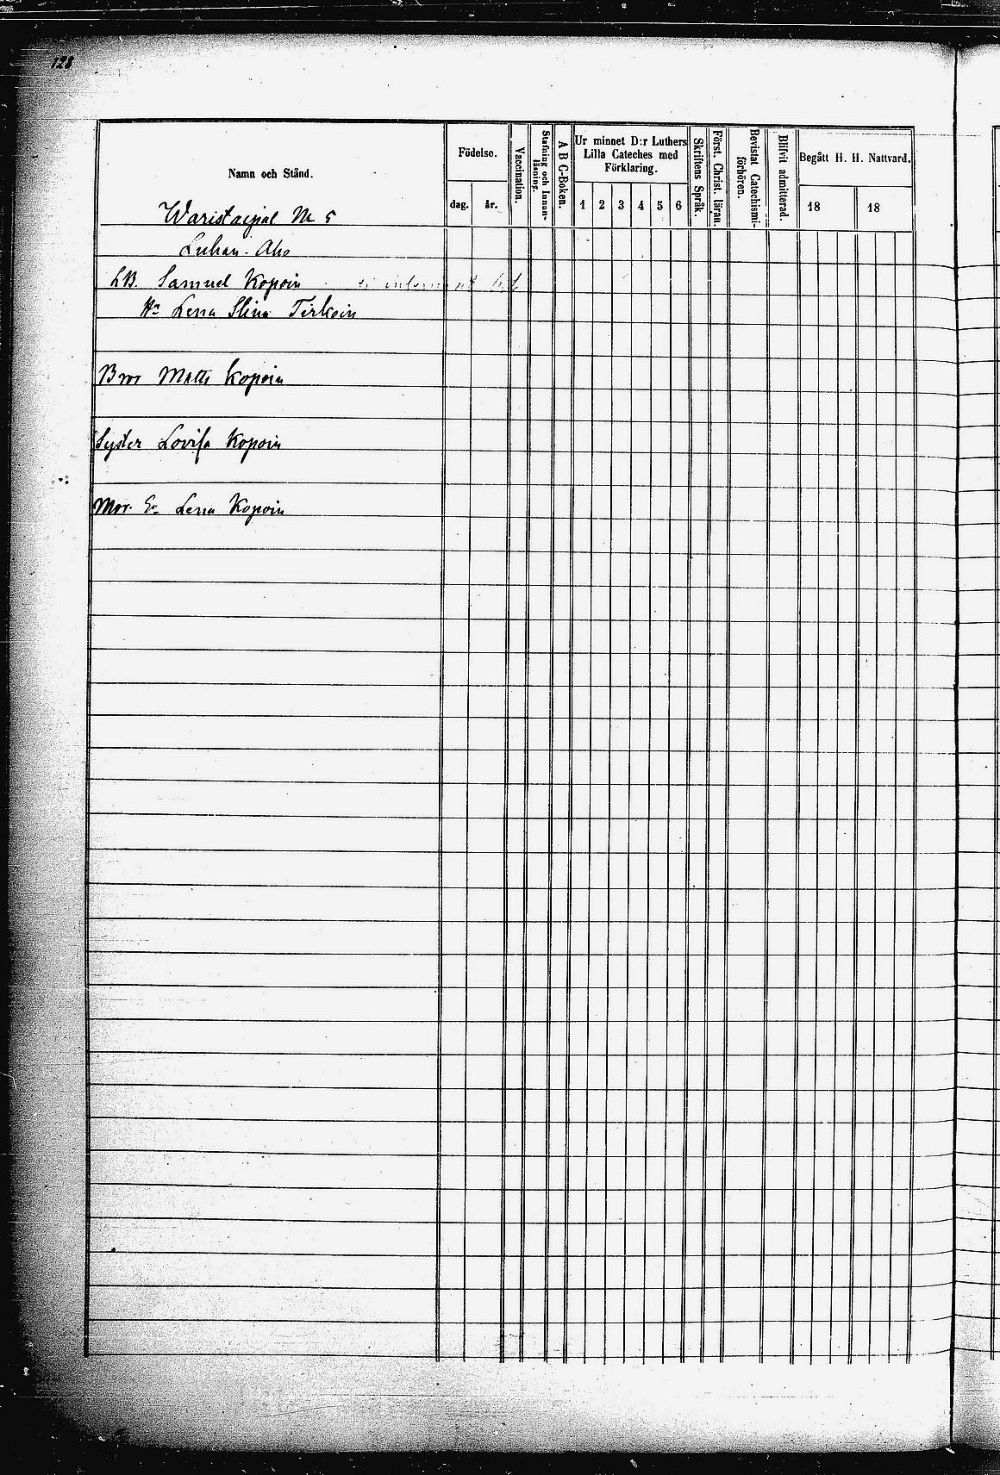 128
Namn och Stånd.
Födelse.
dag.
år.
Vaccination.
Stafning och Innan-
läsning.
A B C-Boken.
Ur minnet D:r Luthers
Lilla Cateches med
Förklaring.
1 2 3 4 5 6
Skriftens Språk.
Först. Christ. läran.
Bevistat Catechismi-
förhören.
Blifvit admitterad.
Begått H. H. Nattvard.
18
18
№ 5
Aho
LB. Samuel Kopoin
Hu Lena Stina Tirkoin
Bror Matts Kopoin
Syster Lovisa Kopoin
Mor. Lena Kopoin